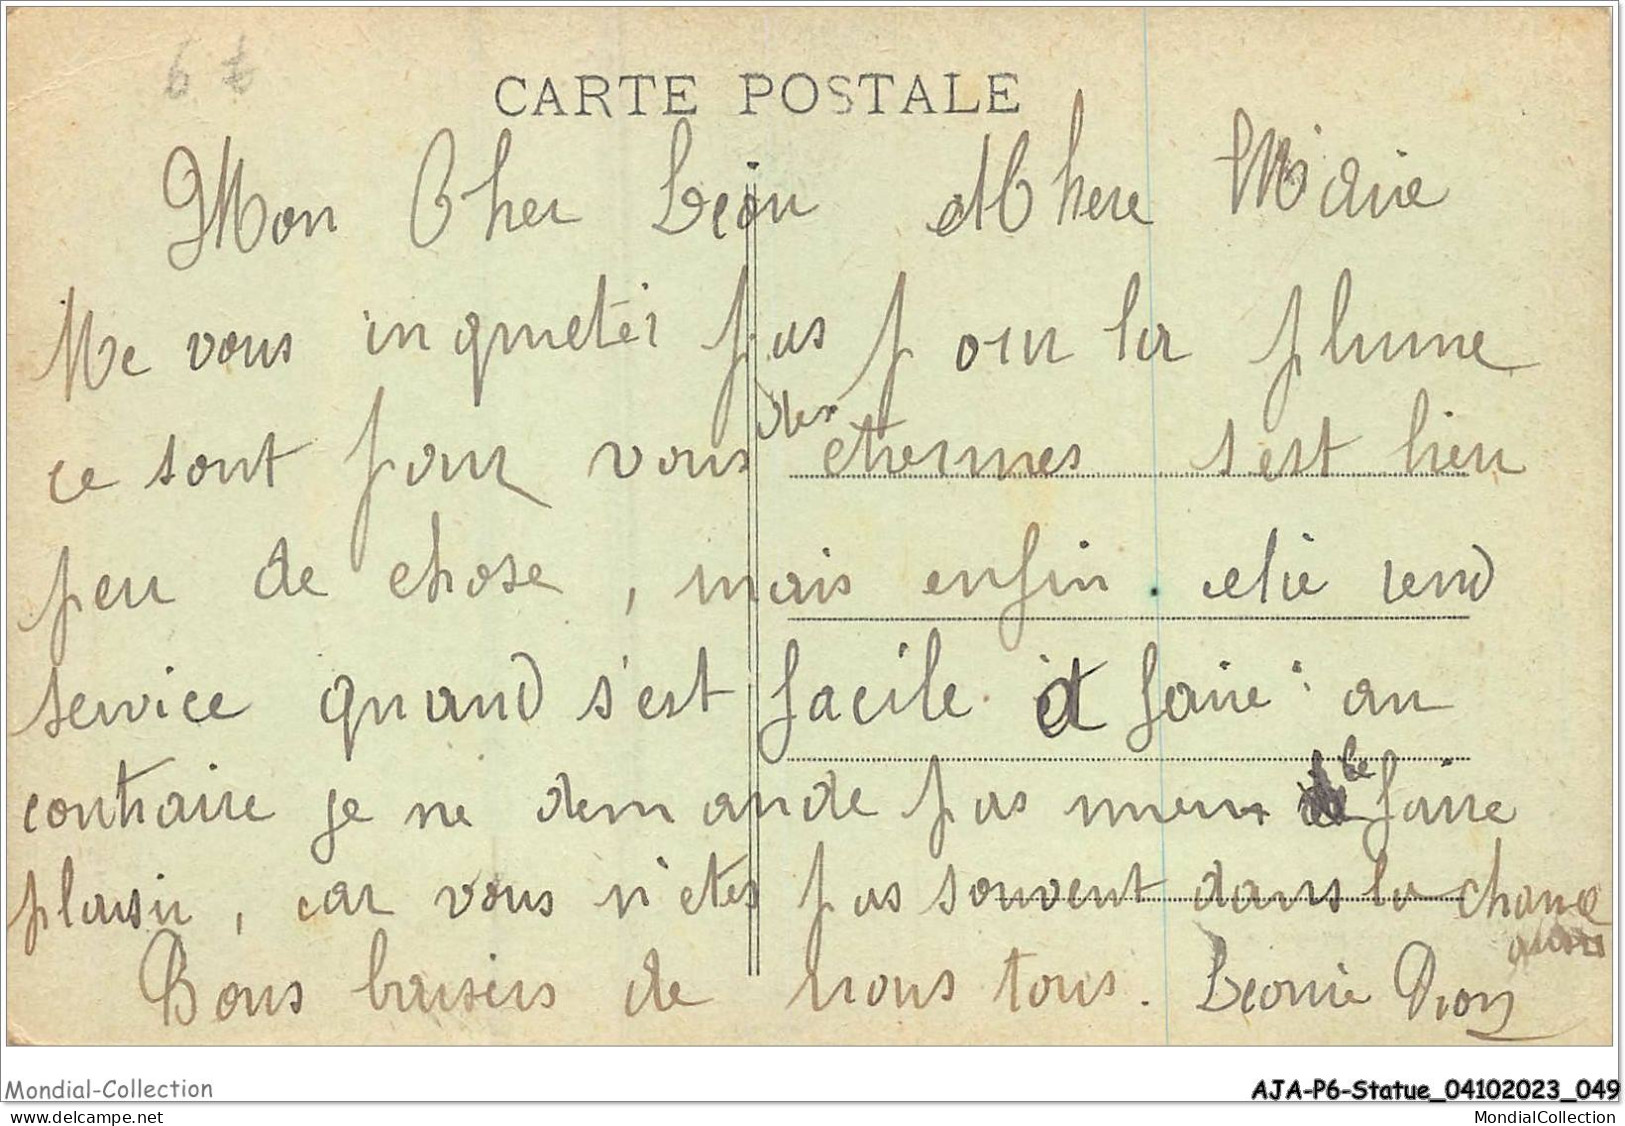 6 t
CARTE POSTALE
Mon Cher Leon et Chere Marie
Ne vous inquietéi pas pour la plume
ce sont pour vous des etrennes s'est bien
peu de chose, mais enfin. elie rend
service quand s'est facile à faire : au
contraire je ne demande pas mieux le faire
plaisir, car vous n'etes pas souvent dans la chance
aussi
Bons baisers de nous tous. Leonie Dion
Mondial-Collection
AJA-P6-Statue_04102023_049
www.delcampe.net
MondialCollection